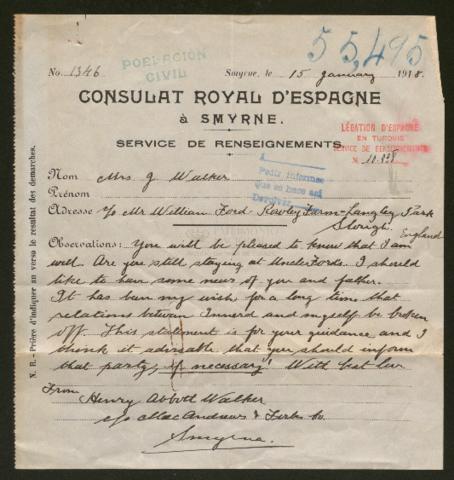 55,495
POBLACION
CIVIL
No. 1346 Smyrne, le 15 january 1918.
CONSULAT ROYAL D'ESPAGNE
à SMYRNE.
SERVICE DE RENSEIGNEMENTS
LÉGATION D'ESPAGNE
EN TURQUIE
SERVICE DE RENSEIGNEMENTS
N.
Pedir informes
que se hace al
Devolver
Nom Mrs. J. Walker
Prénom
Adresse c/o Mr William Ford Rowley Farm - Langley Park
Slough. England
Observations: You will be pleased to know that I am
well. Are you still staying at Uncle Fords. I should
like to have some news of you and father.
It has been my wish for a long time that
relations between and myself be broken
off. This statement is for your guidance and I
think it advisable that you should inform
that party, if necessary! With best love
From
Henry Abbott Walker
c/o MacAndrews & Forbes Co.
Smyrna.
N. B. - Prière d'indiquer au verso le resultat des demarches.